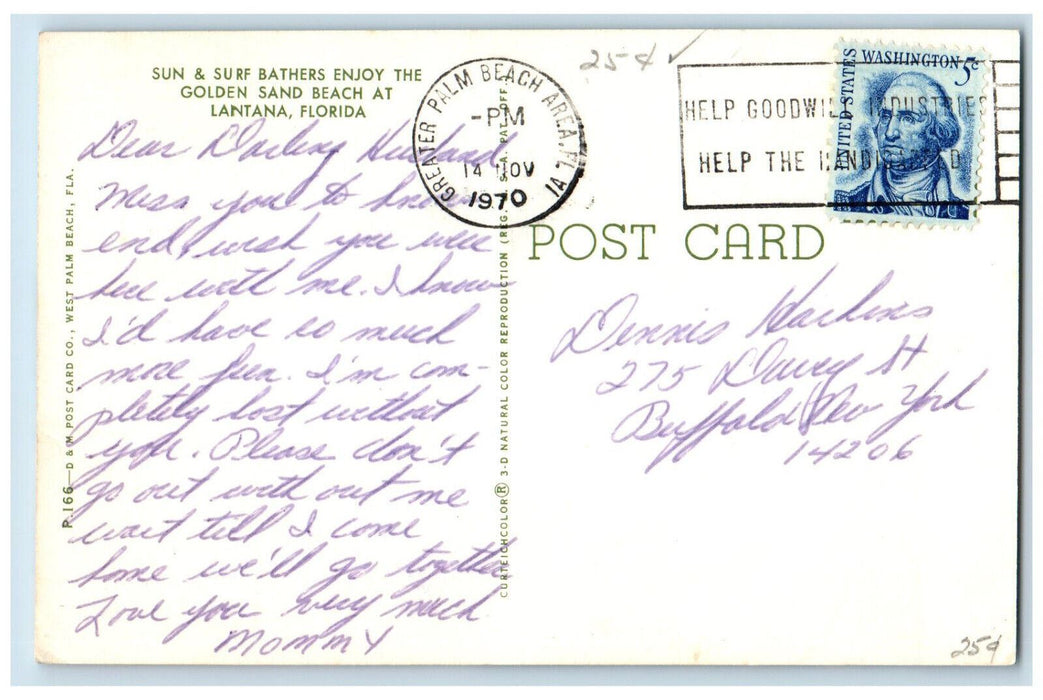 SUN & SURF BATHERS ENJOY THE
GOLDEN SAND BEACH AT
LANTANA, FLORIDA
Dear Darling Husband
Miss you to know
end, wish you were
here with me. I know
I'd have so much
more fun. I'm com-
pletely lost without
you. Please don't
go out with out me
wait till I come
home we'll go together
Love you very much
Mommy
P.166—D & M POST CARD CO., WEST PALM BEACH, FLA.
CURTEICHCOLOR® 3-D NATURAL COLOR REPRODUCTION (REG. U.S.A. PAT. OFF.
GREATER PALM BEACH AREA, FL
PM
14 NOV
1970
1A
25¢
HELP GOODWILL INDUSTRIES
HELP THE HANDICAPPED
UNITED STATES
WASHINGTON 5c
POST CARD
Dennis
275 Davey St
Buffalo New York
14206
25¢